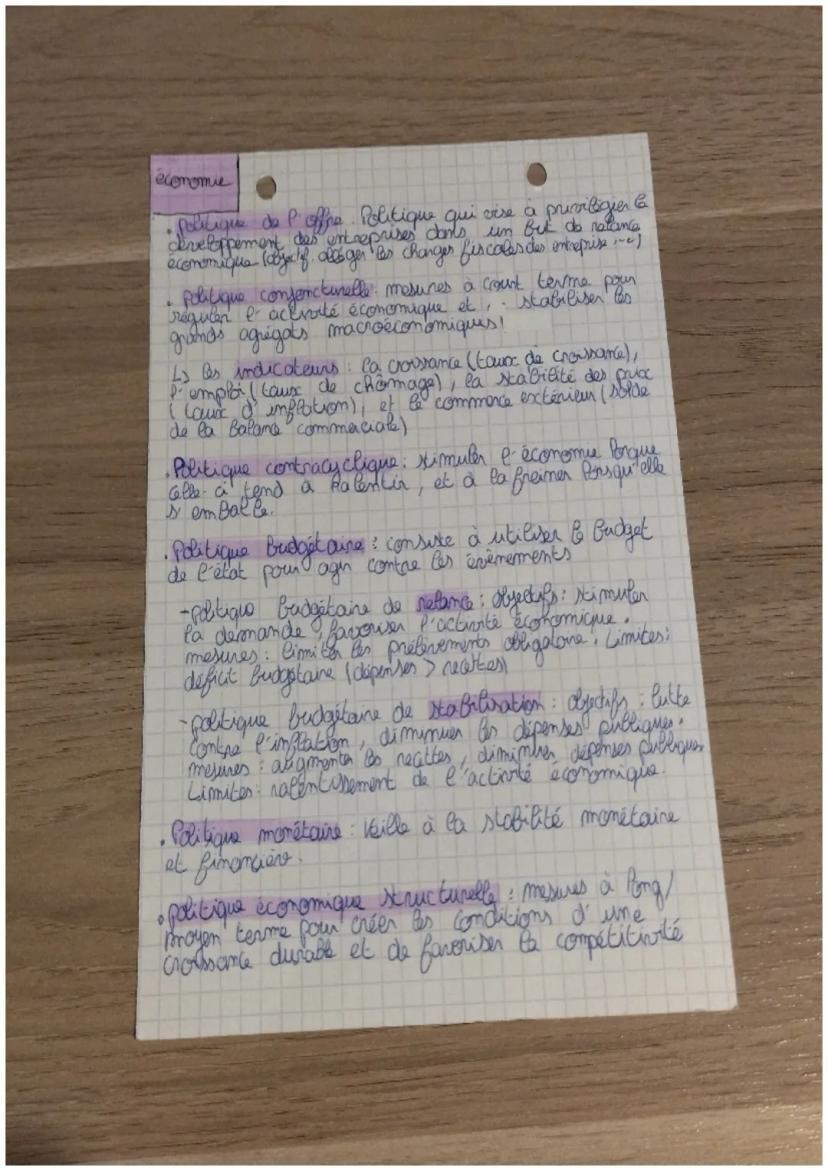 économie
. Politique de l'offre. Politique qui vise à privilégier le
développement des entreprises dans un but de relance
économique (objectif. alléger les charges fiscales des entreprise ...)
. politique conjoncturelle: mesures à court terme pour
réguler l'activité économique et, stabiliser les
grands agrégats macroéconomiques!
L> les indicateurs : la croissance (taux de croissance),
l'emploi (taux de chômage), la stabilité des prix
(taux d'inflation), et le commerce extérieur (solde
de la balance commerciale)
. Politique contracyclique : stimuler l'économie lorsque
celle-ci tend à ralentir, et à la freiner lorsqu'elle
s'emballe.
. Politique budgétaire : consiste à utiliser le budget
de l'état pour agir contre les évènements
- politique budgétaire de relance : objectifs : stimuler
la demande, favoriser l'activité économique.
mesures : limiter les prélèvements obligatoire. Limites:
déficit budgétaire (dépenses > recettes)
- politique budgétaire de stabilisation : objectifs : lutte
contre l'inflation, diminuer les dépenses publiques.
mesures : augmenter les recettes, diminuer dépenses publiques
Limites: ralentissement de l'activité économique.
. Politique monétaire : veille à la stabilité monétaire
et financière.
. politique économique structurelle : mesures à long/
moyen terme pour créer les conditions d'une
croissance durable et de favoriser la compétitivité